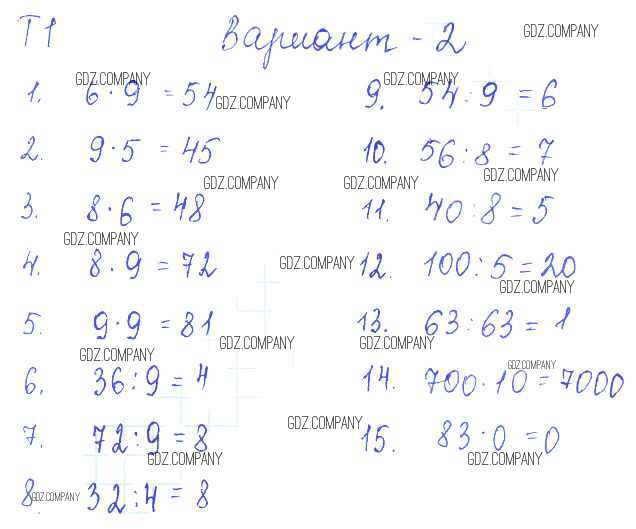 Т1 Вариант - 2 GDZ.COMPANY
GDZ.COMPANY GDZ.COMPANY
1. 6 · 9 = 54 GDZ.COMPANY 9. 54 : 9 = 6
2. 9 · 5 = 45 10. 56 : 8 = 7
GDZ.COMPANY GDZ.COMPANY GDZ.COMPANY
3. 8 · 6 = 48 11. 40 : 8 = 5
GDZ.COMPANY
4. 8 · 9 = 72 GDZ.COMPANY 12. 100 : 5 = 20
GDZ.COMPANY
5. 9 · 9 = 81 13. 63 : 63 = 1
GDZ.COMPANY GDZ.COMPANY GDZ.COMPANY
GDZ.COMPANY
6. 36 : 9 = 4 14. 700 · 10 = 7000
GDZ.COMPANY
7. 72 : 9 = 8 15. 83 · 0 = 0
GDZ.COMPANY GDZ.COMPANY
8. GDZ.COMPANY 32 : 4 = 8